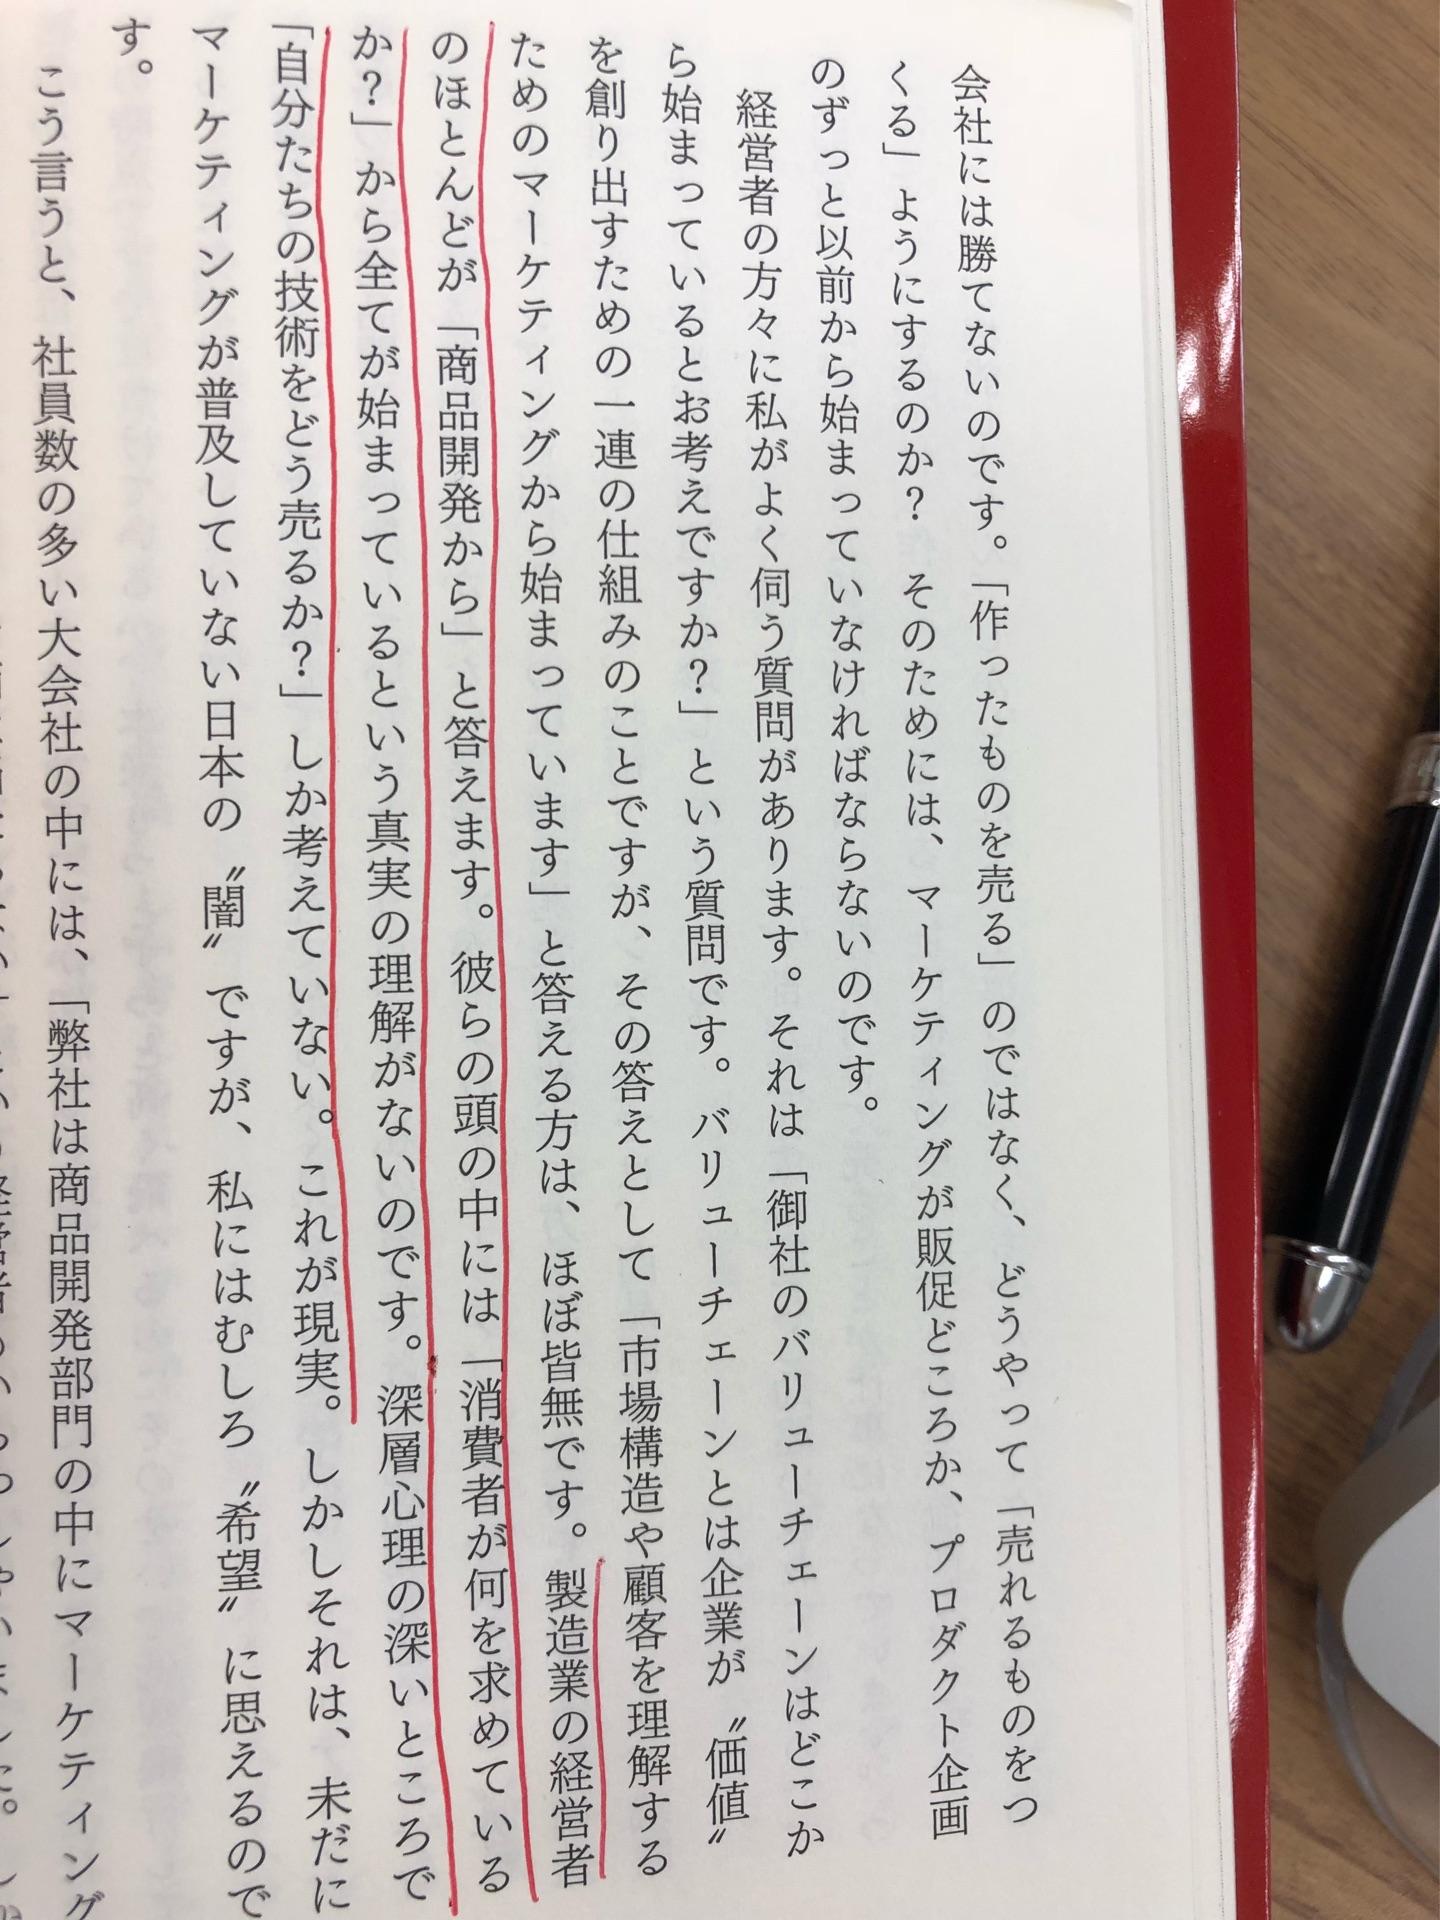 会社には勝てないのです。「作ったものを売る」のではなく、どうやって「売れるものをつ
くる」ようにするのか？　そのためには、マーケティングが販促どころか、プロダクト企画
のずっと以前から始まっていなければならないのです。
経営者の方々に私がよく伺う質問があります。それは「御社のバリューチェーンはどこか
ら始まっているとお考えですか？」という質問です。バリューチェーンとは企業が〝価値〟
を創り出すための一連の仕組みのことですが、その答えとして「市場構造や顧客を理解する
ためのマーケティングから始まっています」と答える方は、ほぼ皆無です。製造業の経営者
のほとんどが「商品開発から」と答えます。彼らの頭の中には「消費者が何を求めている
か？」から全てが始まっているという真実の理解がないのです。深層心理の深いところで
「自分たちの技術をどう売るか？」しか考えていない。これが現実。しかしそれは、未だに
マーケティングが普及していない日本の〝闇〟ですが、私にはむしろ〝希望〟に思えるので
す。
こう言うと、社員数の多い大会社の中には、「弊社は商品開発部門の中にマーケティング